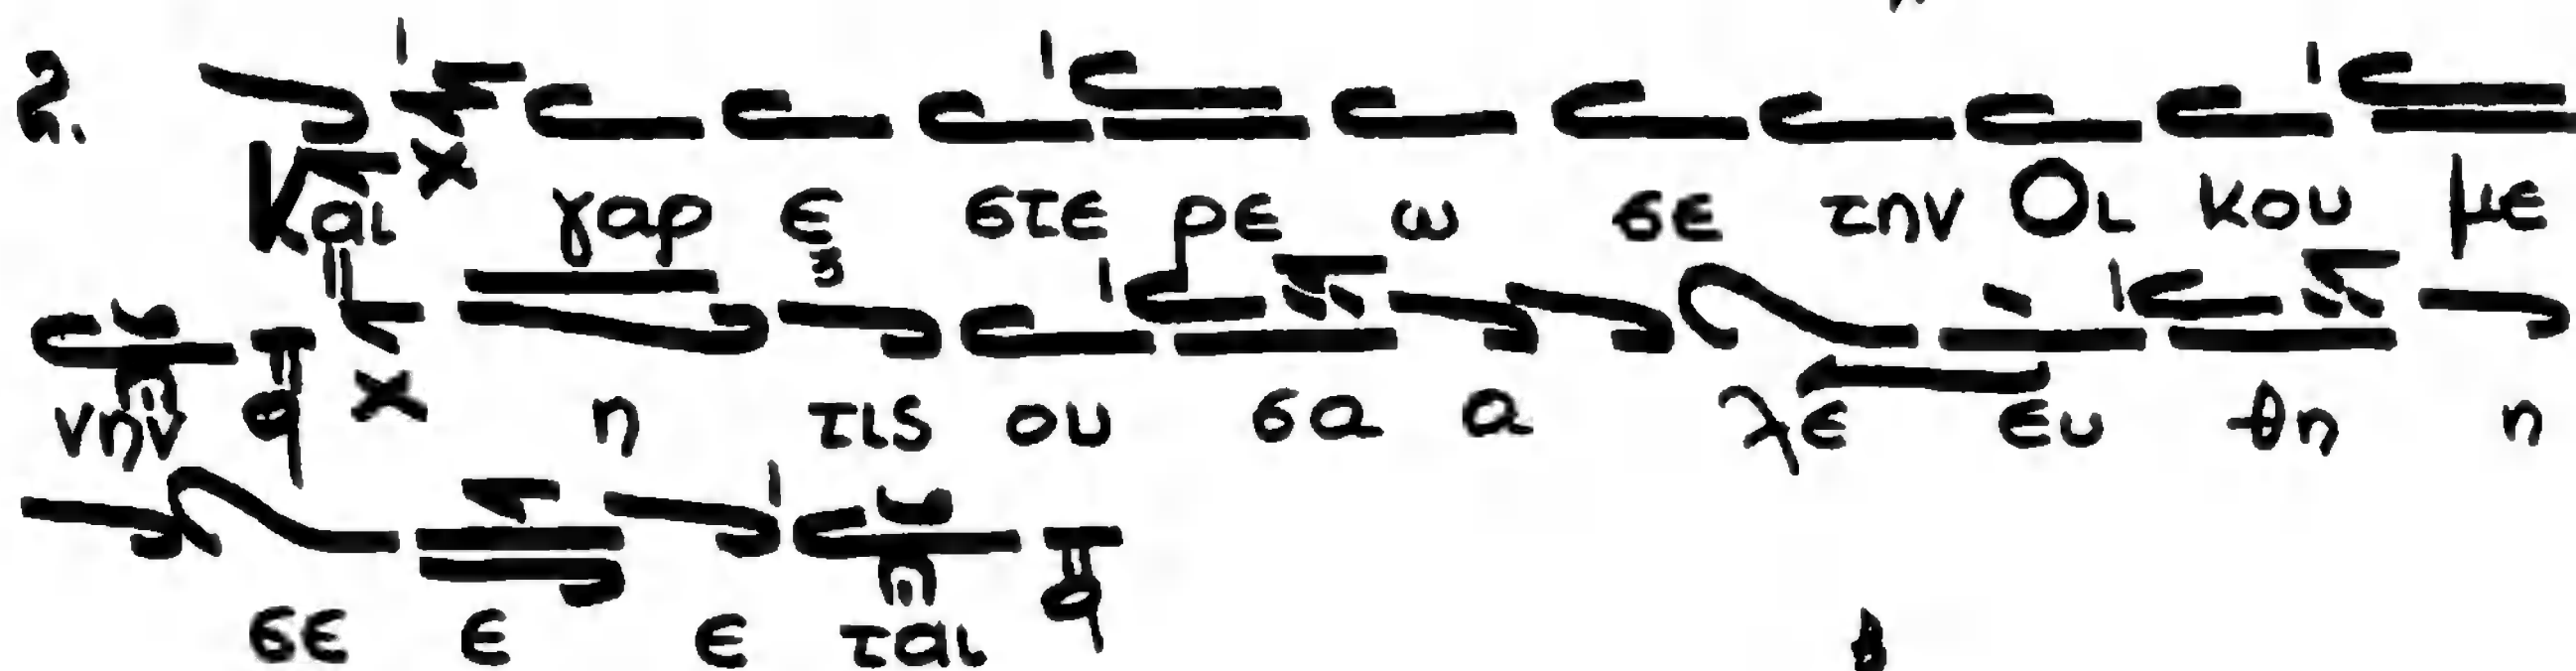 2. Και γαρ ε στε ρε ω σε την Οι κου με
νην η τις ου σα α λε ευ θη η
σε ε ε ται